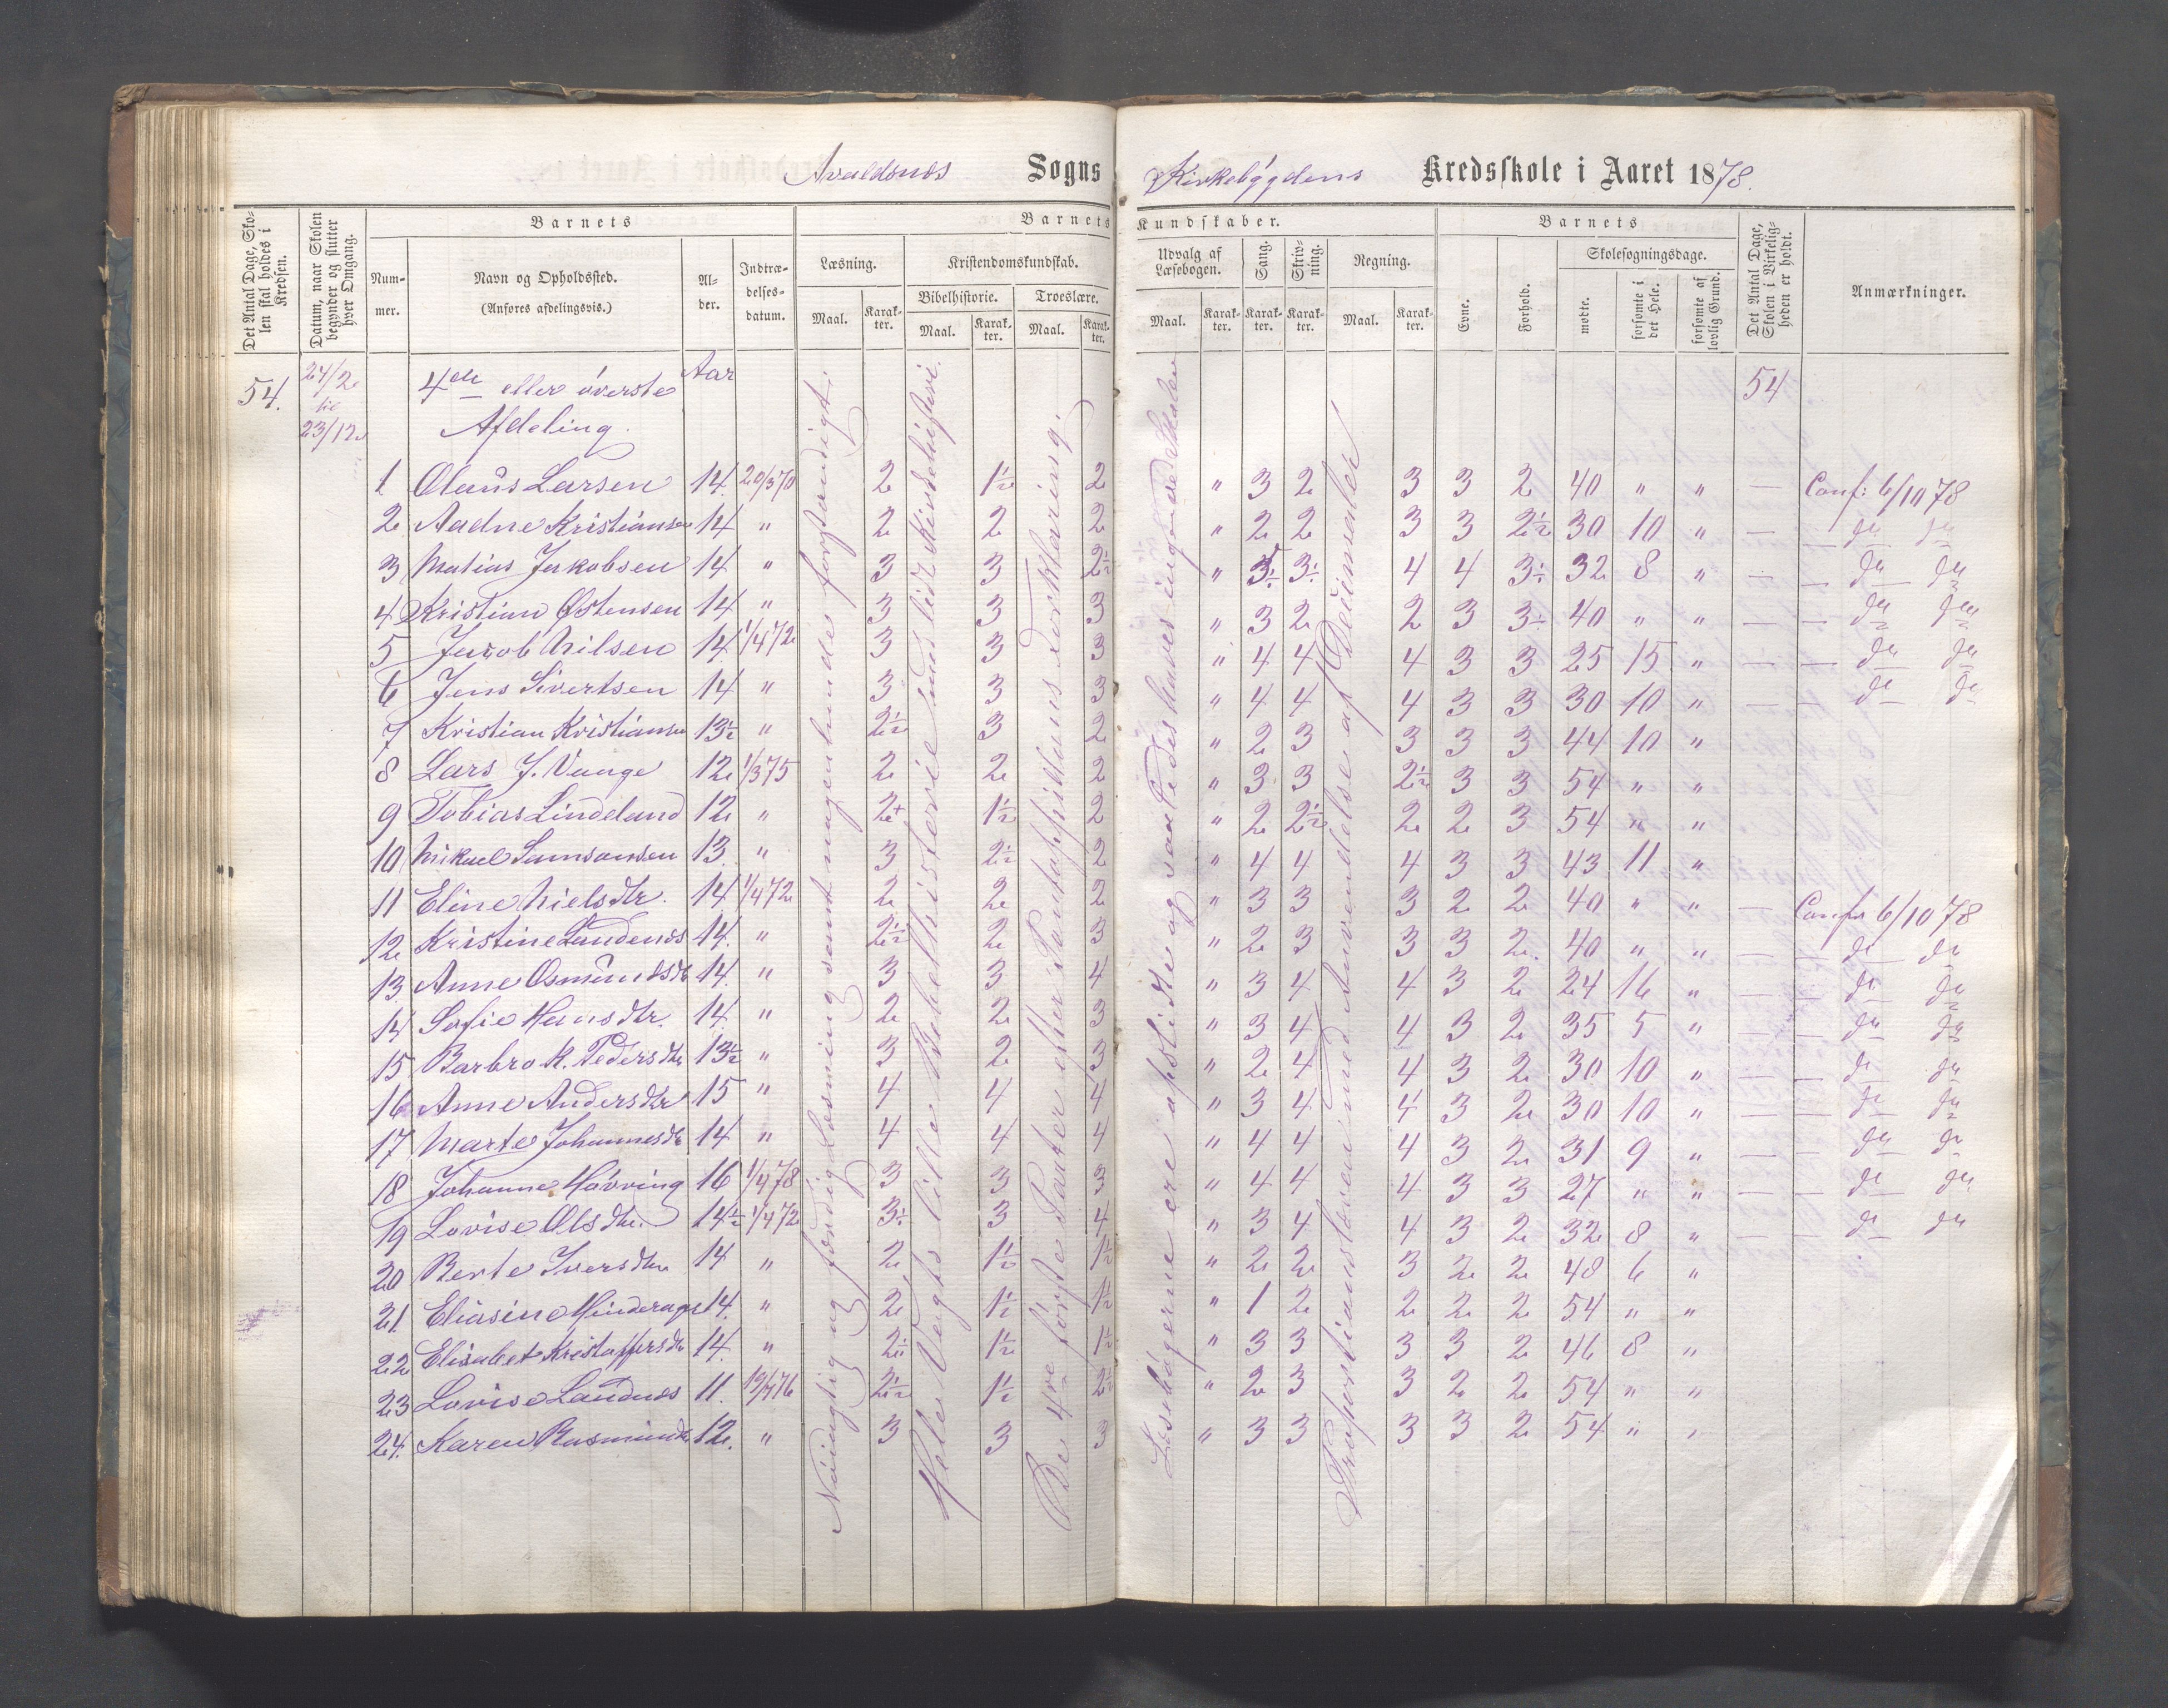 Avaldsnes Sogns Kirkebygdens Kredsskole i Aaret 1878.
Det Antal Dage, Skolen skal holdes i Kredsen.
Datum, naar Skolen begynder og slutter hver Omgang.
Barnets
Nummer.
Navn og Opholdssted.
(Anføres afdelingsvis.)
Alder.
Indtrædelsesdatum.
Barnets Kundskaber.
Læsning.
Maal.
Karakter.
Kristendomskundskab.
Bibelhistorie.
Maal.
Karakter.
Troeslære.
Maal.
Karakter.
Udvalg af Læsebogen.
Maal.
Karakter.
Sang.
Karakter.
Skrivning.
Karakter.
Regning.
Maal.
Karakter.
Barnets
Evne.
Forhold.
Skolesøgningsdage.
mødte.
forsømte i det Hele.
forsømte af lovlig Grund.
Det Antal Dage, Skolen i Virkeligheden er holdt.
Anmærkninger.
54. 24/2 til 23/12 4de eller øverste Afdeling. Aar 54
1 Olaus Larsen 14 20/3 70 2 1½ 2 " 3 2 3 3 2 40 " " — Conf: 6/10 78
2 Aadne Kristiansen 14 " 2 2 2 " 2 2 3 3 2½ 30 10 " — — do do
3 Matias Jakobsen 14 " 3 3 2½ " 3÷ 3÷ 4 4 3÷ 32 8 " — — do do
4 Kristian Østensen 14 " 3 3 3 " 3 2 2 3 3÷ 40 " " — — do do
5 Jacob Nilsen 14 1/4 72 3 3 3 " 4 4 4 3 3 25 15 " — — do do
6 Jens Sivertsen 14 " 3 3 3 " 4 4 4 3 3 30 10 " — — do do
7 Kristian Kristiansen 13½ " 2½ 3 2 " 2 3 3 3 3 44 10 "
8 Lars J. Vange 12 1/3 75 2 2 2 " 3 3 2½ 3 3 54 " "
9 Tobias Lindeland 12 " 2+ 1½ 2 " 2 2½ 2 2 3 54 " "
10 Mikael Samsonsen 13 " 3 2½ 2 " 4 4 4 3 3 43 11 "
11 Eline Nielsdtr. 14 1/4 72 2 2 2 " 3 3 3 2 2 40 " " — Conf 6/10 78
12 Kristine Landenes 14. " 2½ 2 3 " 2 3 3 3 2 40 " " — — do do
13 Anne Osmundsdtr 14. " 3 3 4 " 3 4 4 3 2 24 16 " — — do do
14 Sofie Hansdtr. 14. " 2 2 3 " 3 4 4 3 2 35 5 " — — do do
15 Barbro K. Pedersdtr 13½ " 3 2 3 " 2 4 4 3 2 30 10 " — — do do
16 Anne Andersdtr 15 " 4 4 4 " 3 4 4 3 2 30 10 " — — do do
17 Marte Johannesdtr 14 " 4 4 4 " 4 4 4 3 2 31 9 " — — do do
18 Johanne Høvring 16 1/4 78 3 3 3 " 4 4 4 3 3 27 " " — — do do
19 Lovise Olsdtr. 14½ 1/4 72 3÷ 3 4 " 3 4 4 3 2 32 8 " — — do do
20 Berte Iversdtr 14 " 2 1½ 1½ " 2 2 3 2 2 48 6 "
21. Eliasine Hinderager 14. " 2 1½ 1½ " 1 2 2 2 2 54 " "
22 Elisabet Kristoffersdtr 14. " 2÷ 1½ 1½ " 3 3 3 3 2 46 8 "
23 Lovise Landnes 11. 19/4 76 2½ 1½ 2½ " 2 3 3 2 2 54 " "
24. Karen Rasmusdtr 12. " 3 3 3 " 3 3 3 3 2 54 " "
Nøiagtig og færdig Læsning samt nogenlunde forstandigt.
Hele Vogts lille Bibelhistorie samt lidt Kirkehistorie.
De 4re første Parter efter Pontoppidans Forklaring.
Læsebøgerne ere afslidte og saaledes haves ingen ved Skolen
Proportionslæren med Anvendelse af Decimaler